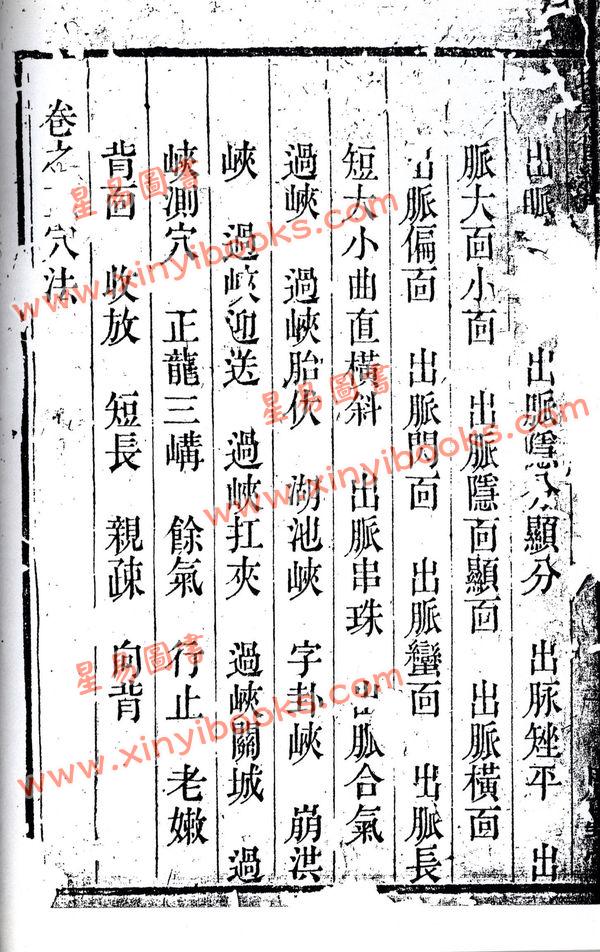 出脈 出脈隱分顯分 出脉矬平 出
脈大面小面 出脈隱面顯面 出脈橫面
出脈偏面 出脈閃面 出脈蠻面 出脈長
短大小曲直橫斜 出脈串珠 出脈合氣
過峽 過峽胎伏 湖池峽 字卦峽 崩洪
峽 過峽迎送 過峽扛夾 過峽關城 過
峽測穴 正龍三 餘氣 行止 老嫩
背面 收放 短長 親疎 向背
卷之 穴法
星易圖書
www.xinyibooks.com
星易圖書
www.xinyibooks.com
星易圖書
www.xinyibooks.com